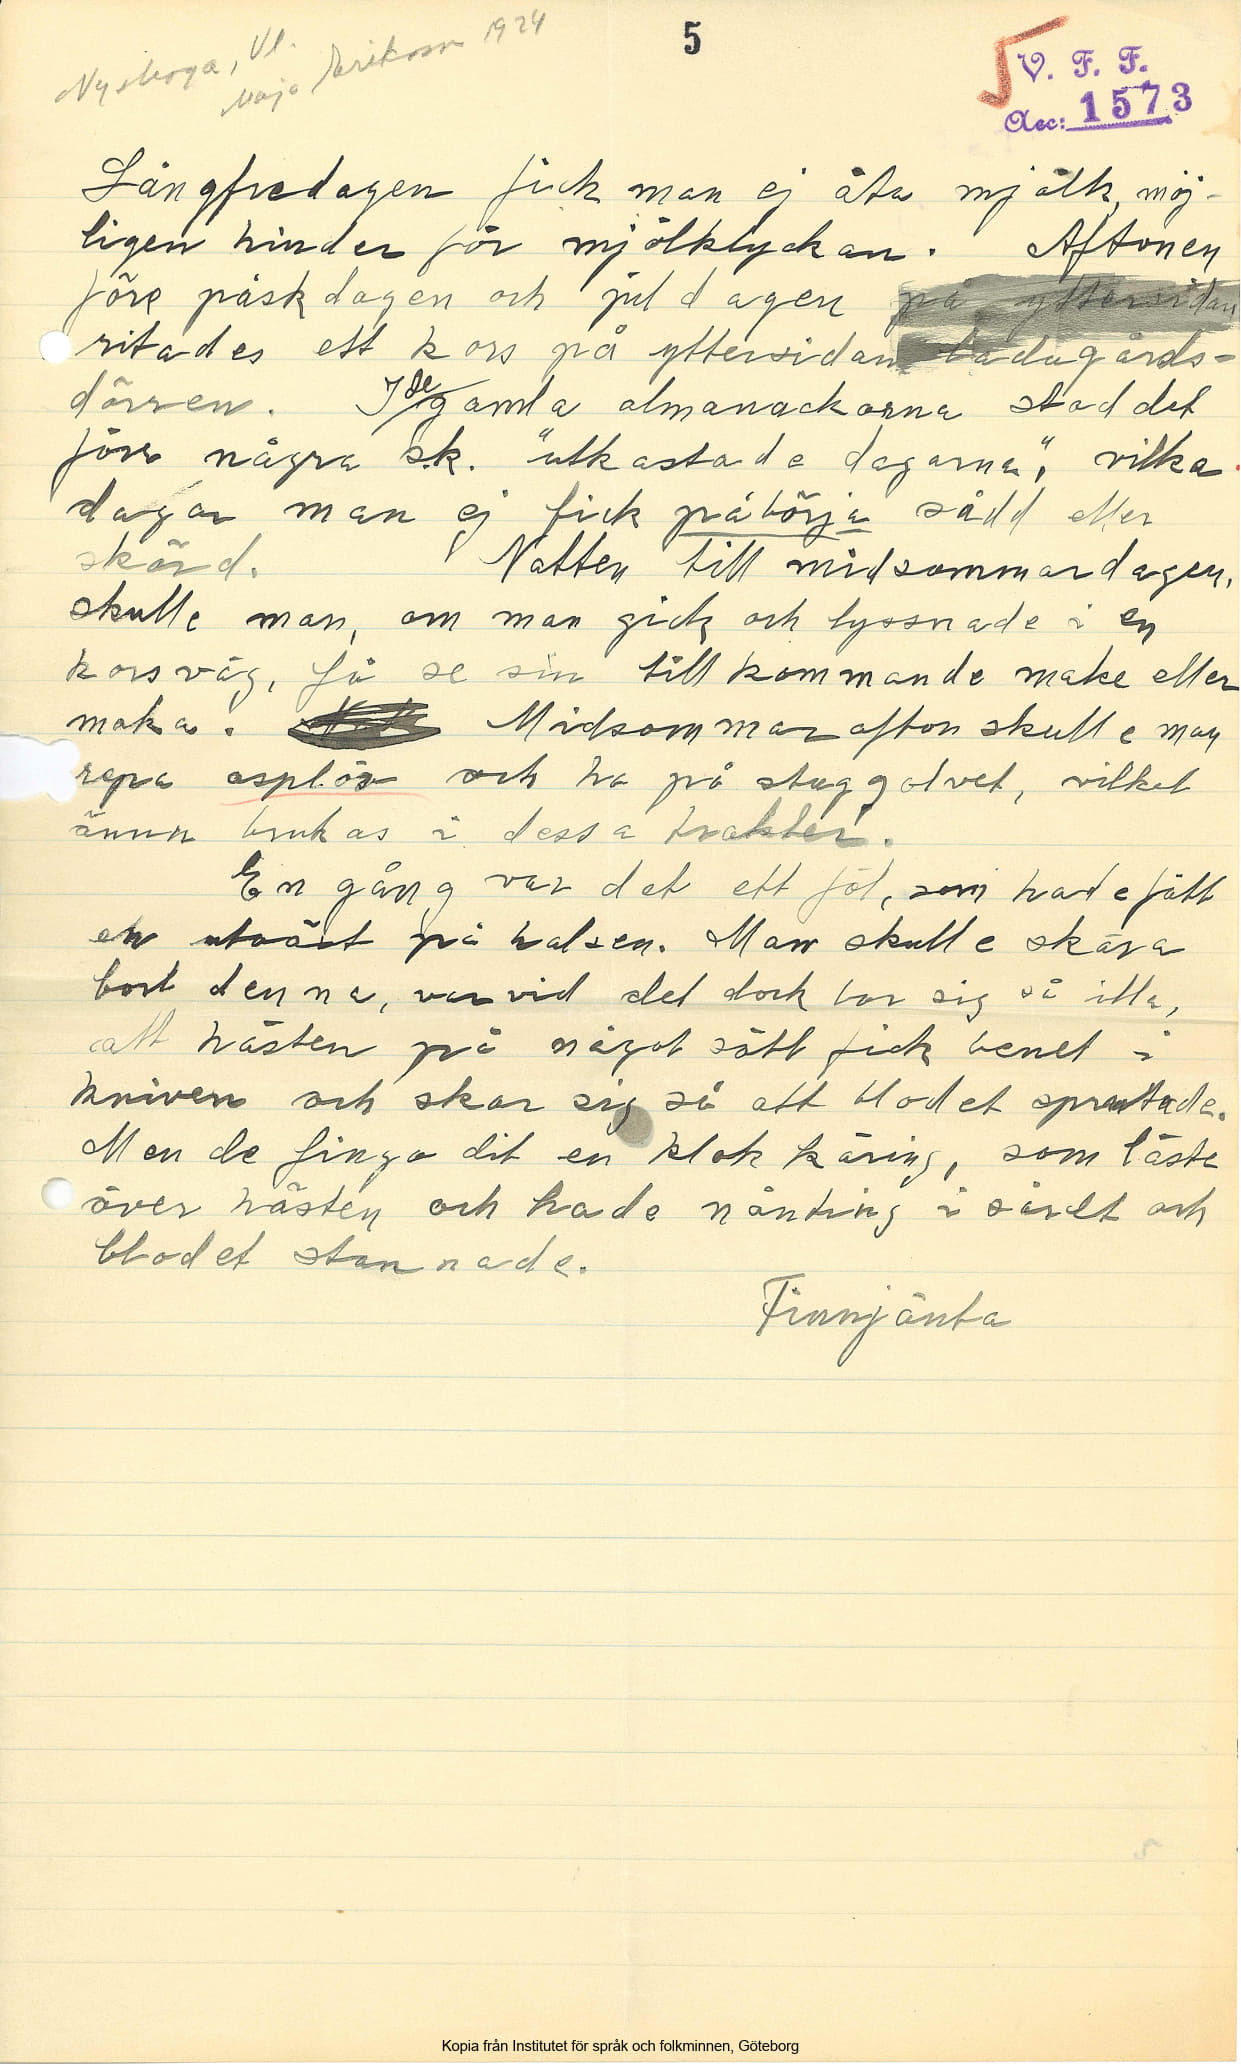 Nyskoga, Vl.
Maja Eriksson 1924
5
V. F. F.
Acc: 1573
Långfredagen fick man ej äta mjölk, möj-
ligen hinder för mjölklyckan. Aftonen
före påskdagen och juldagen på yttersidan
ritades ett kors på yttersidan ladugårds-
dörren. I de gamla almanackorna stod det
före några s.k. "utkastade dagarna", vilka
dagar man ej fick påbörja sådd eller
skörd. Natten till midsommardagen,
skulle man, om man gick och lyssnade i en
korsväg, få se sin tillkommande make eller
maka. Midsommarafton skulle man
repa asplöv och ha på stuggolvet, vilket
ännu brukas i dessa trakter.
En gång var det ett föl, som hade fått
en utväxt på halsen. Man skulle skära
bort denna, varvid det dock bar sig så illa,
att hästen på något sätt fick benet i
kniven och skar sig så att blodet sprutade.
Men de fingo dit en klok käring, som läste
över hästen och hade nånting i såret och
blodet stannade.
Finnjänta
5
Kopia från Institutet för språk och folkminnen, Göteborg